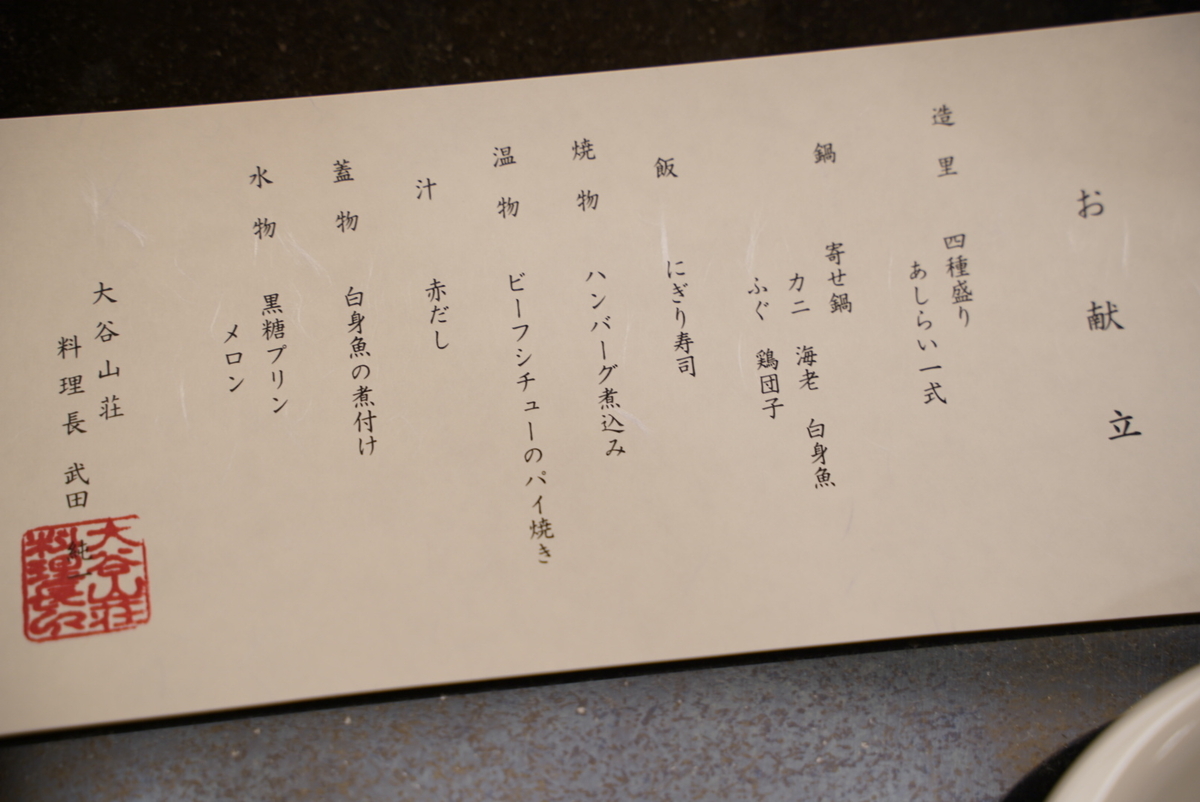 お献立
造里 四種盛り
あしらい一式
鍋 寄せ鍋
カニ 海老 白身魚
ふぐ 鶏団子
飯 にぎり寿司
焼物 ハンバーグ煮込み
温物 ビーフシチューのパイ焼き
汁 赤だし
蓋物 白身魚の煮付け
水物 黒糖プリン
メロン
大谷山荘
料理長 武田 純一
大谷山荘
料理長印